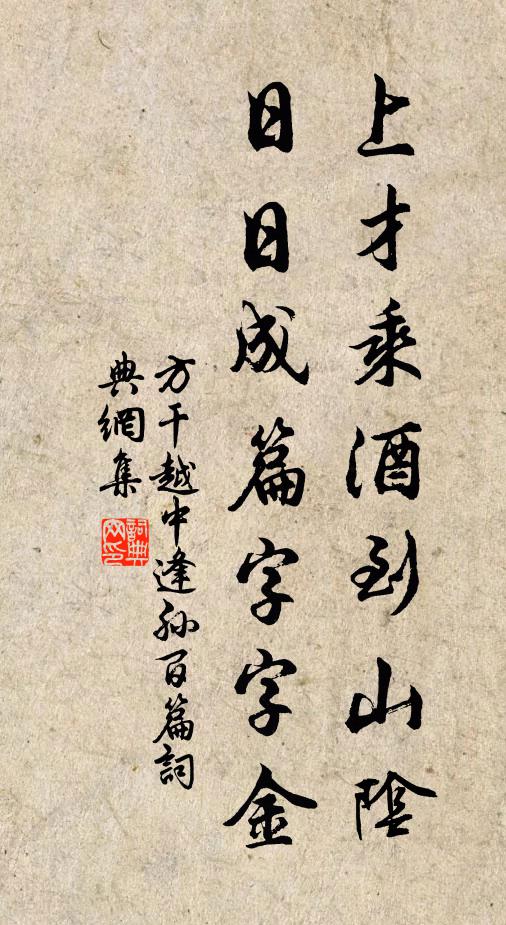 上才乘酒到山陰
日日成篇字字金
方干越中逢孫百篇詞
典網集
詞典
网印